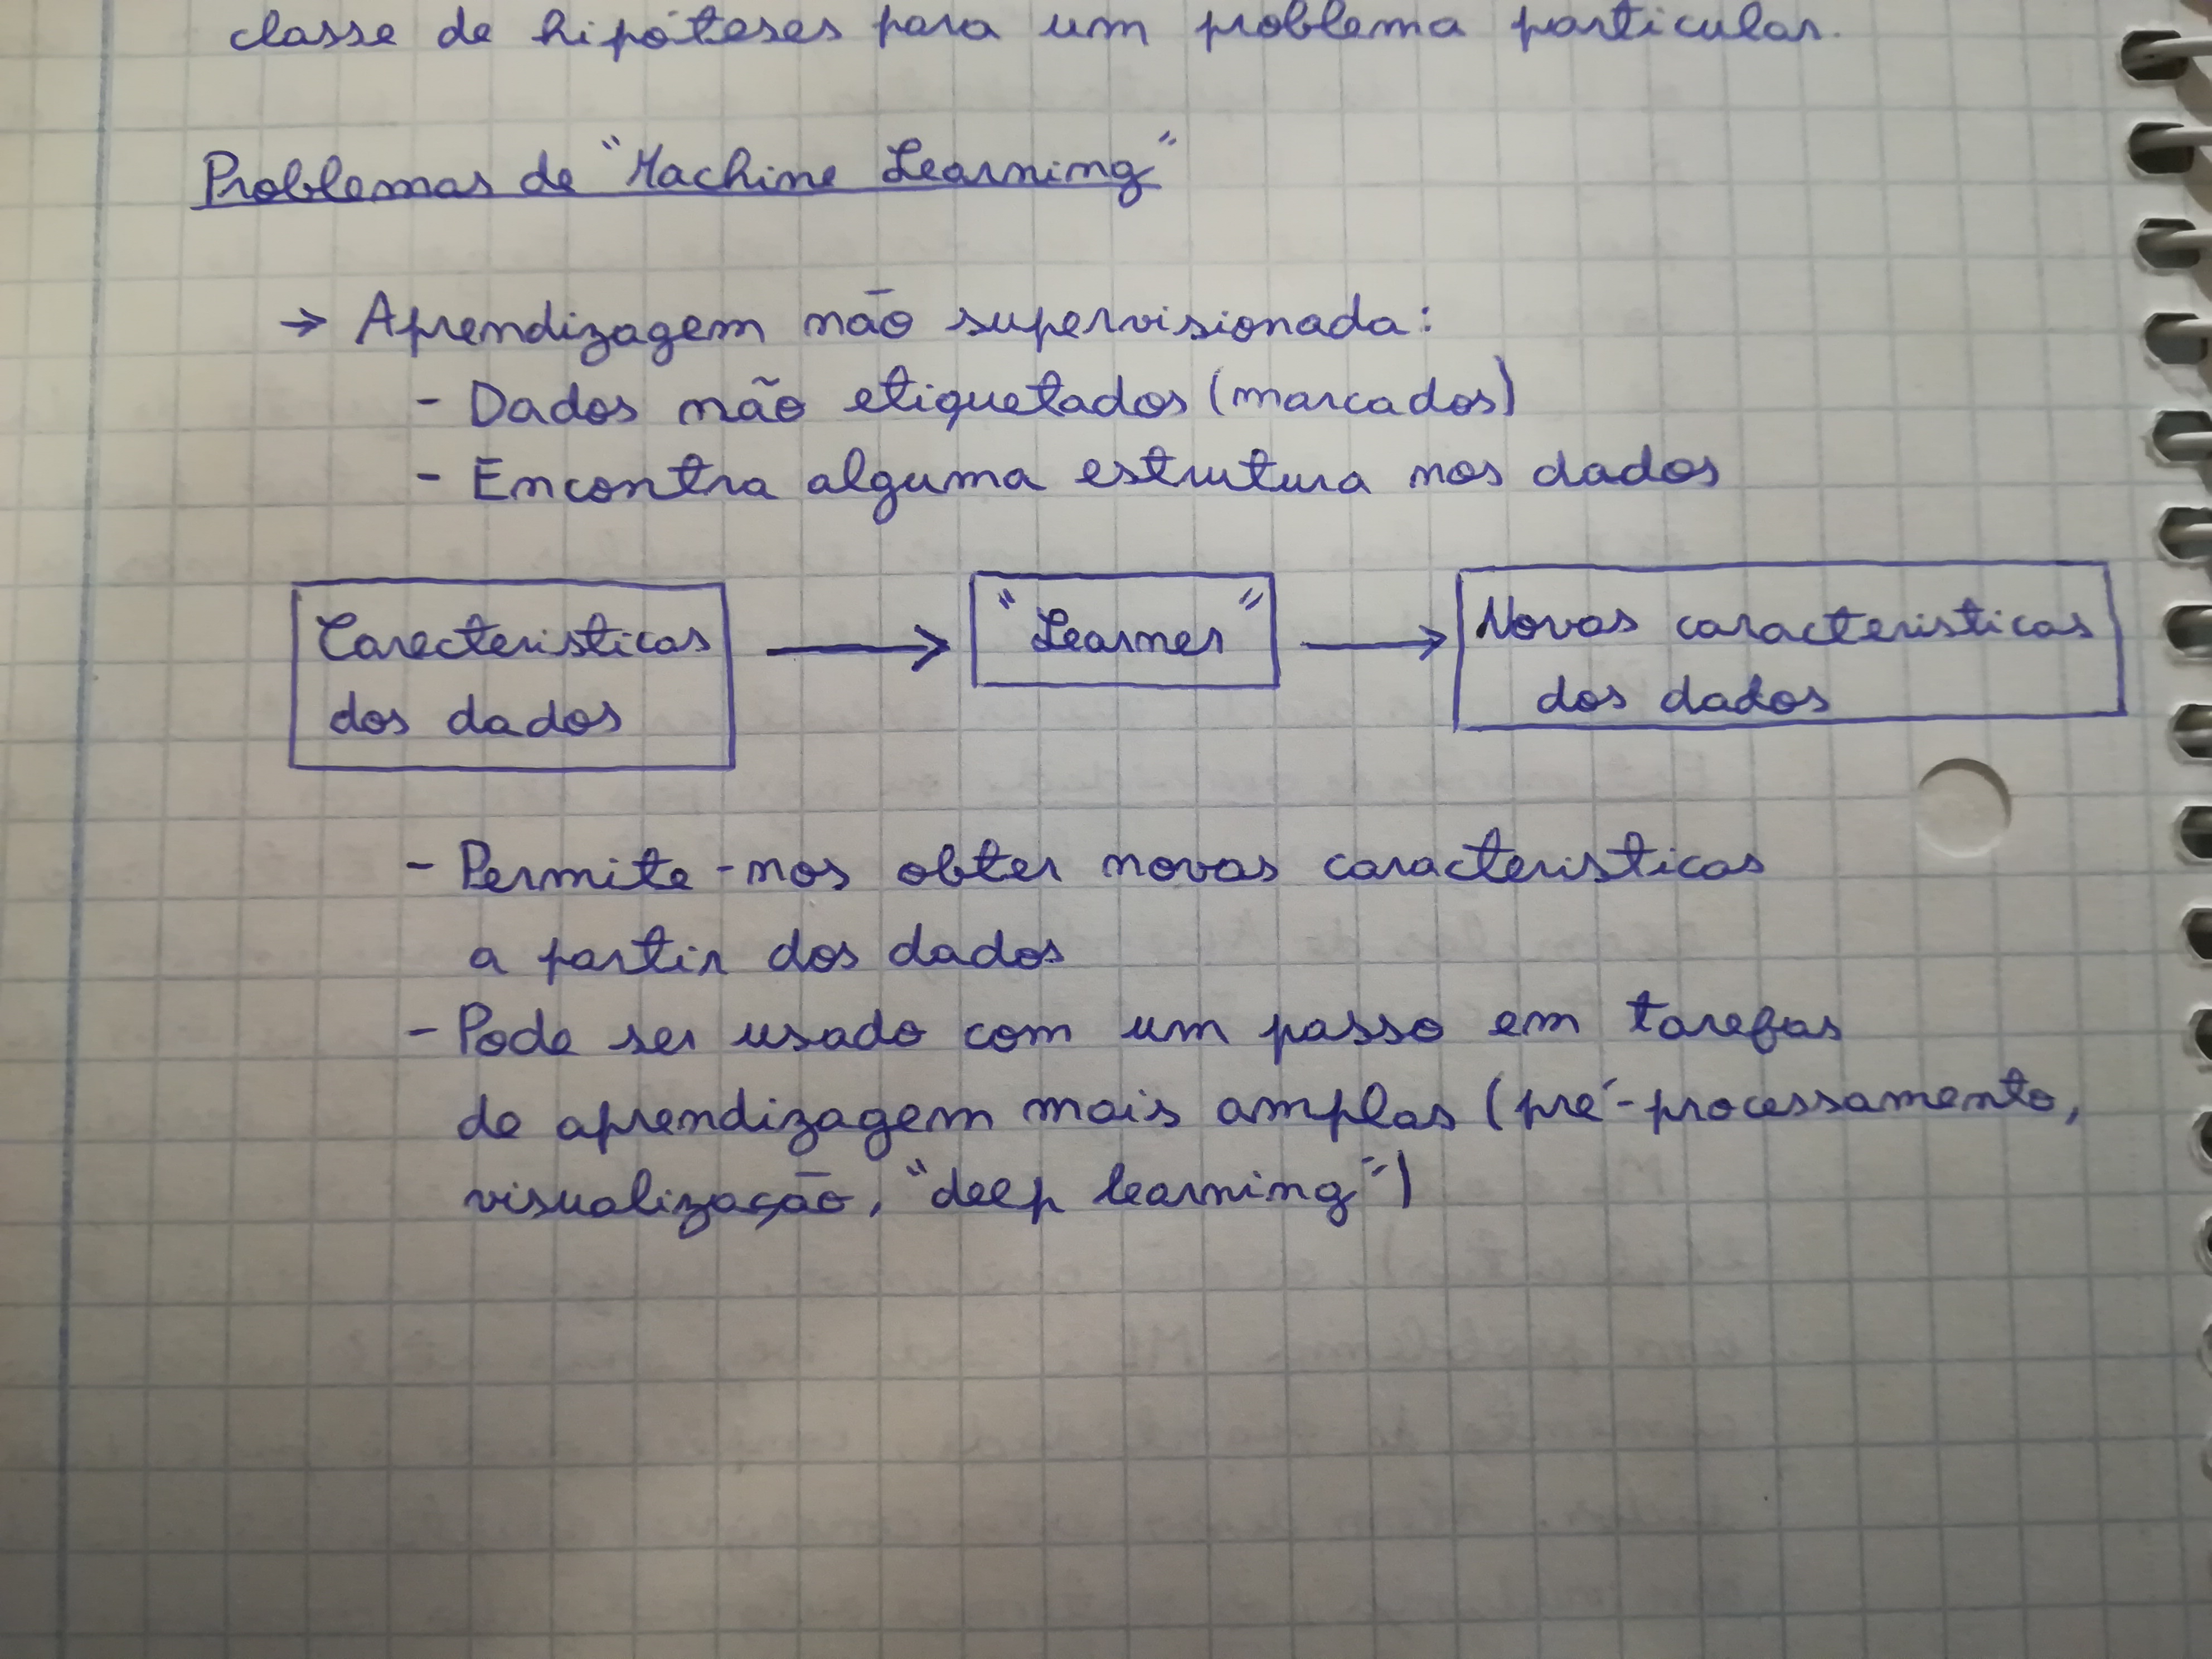 classe de hipóteses para um problema particular.
Problemas de "Machine Learning"
→ Aprendizagem não supervisionada:
- Dados não etiquetados (marcados)
- Encontra alguma estrutura nos dados
Carecteristicas
dos dados
"Learner"
Novas caracteristicas
dos dados
- Permite-nos obter novas caracteristicas
a partir dos dados
- Pode ser usado com um passo em tarefas
de aprendizagem mais amplas (pré-processamento,
visualização, "deep learning")